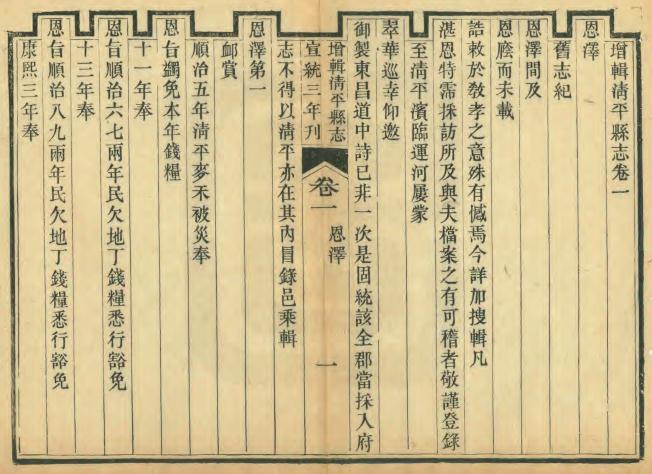 增輯清平縣志卷一
恩澤
舊志紀
恩澤間及
恩廕而未載
誥敕於敎孝之意殊有憾焉今詳加搜輯凡
湛恩特霈採訪所及與夫檔案之有可稽者敬謹登錄
至清平濱臨運河屢蒙
翠華巡幸仰邀
御製東昌道中詩已非一次是固統該全郡當採入府
增輯清平縣志 卷一 恩澤 一
宣統三年刊
志不得以清平亦在其內目錄邑乘輯
恩澤第一
卹賞
順治五年清平麥禾被災奉
恩旨蠲免本年錢糧
十一年奉
恩旨順治六七兩年民欠地丁錢糧悉行豁免
十三年奉
恩旨順治八九兩年民欠地丁錢糧悉行豁免
康熙三年奉